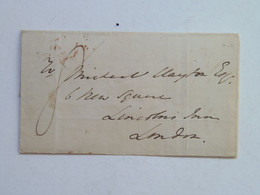 To Michael Clayton Esq:
6 New Square
Lincolns Inn
London.